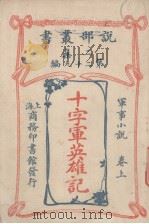 説部叢書
十字軍英雄記
軍事小說 卷上
上海商務印書館發行